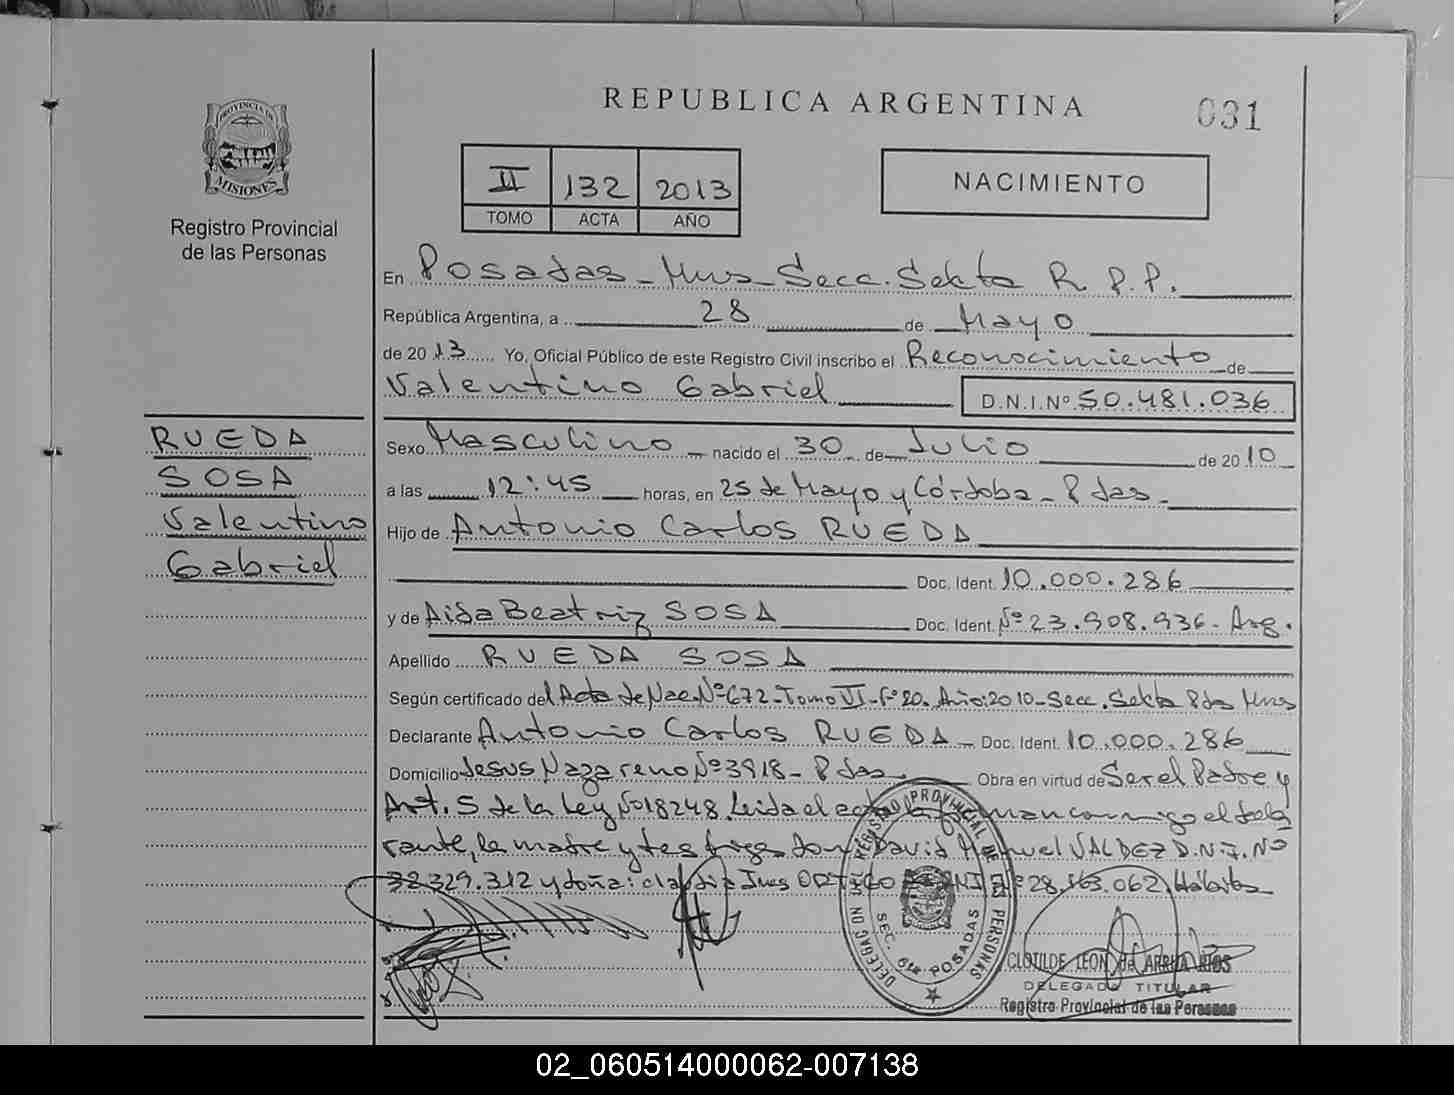 REPUBLICA ARGENTINA
031
PROVINCIA DE
MISIONES
Registro Provincial
de las Personas
II 132 2013
TOMO ACTA AÑO
NACIMIENTO
En Posadas - Mnes Secc. Sexta R. P. P.
República Argentina, a 28 de Mayo
de 2013 Yo, Oficial Público de este Registro Civil inscribo el Reconocimiento de
Valentino Gabriel D.N.I.Nº 50.481.036
RUEDA
SOSA
Valentino
Gabriel
Sexo Masculino nacido el 30 de Julio de 2010
a las 12:45 horas, en 25 de Mayo y Córdoba - Pdas -
Hijo de Antonio Carlos RUEDA
Doc. Ident. 10.000.286
y de Aida Beatriz SOSA Doc. Ident. Nº 23.908.936 - Arg.
Apellido RUEDA SOSA
Según certificado del Acta de Nac. Nº 672 - Tomo VI - Fº 20. Año: 2010 - Secc. Sexta Pdas Mnes
Declarante Antonio Carlos RUEDA - Doc. Ident. 10.000.286
Domicilio Jesus Nazareno Nº 3918 - Pdas Obra en virtud de Ser el Padre y
Art. 5 de la Ley Nº 18248. Leida el acta la firman conmigo el decla
rante, la madre y testigos don: David Manuel VALDEZ D.N.I. Nº
32.329.312 y doña: Claudia Ines DNI Nº 28.163.062. Hábiles
DELEGACION DEL REGISTRO PROVINCIAL DE LAS PERSONAS
SEC. 6ta POSADAS
CLOTILDE LEON de RIOS
DELEGADA TITULAR
Registro Provincial de las Personas
02_060514000062-007138